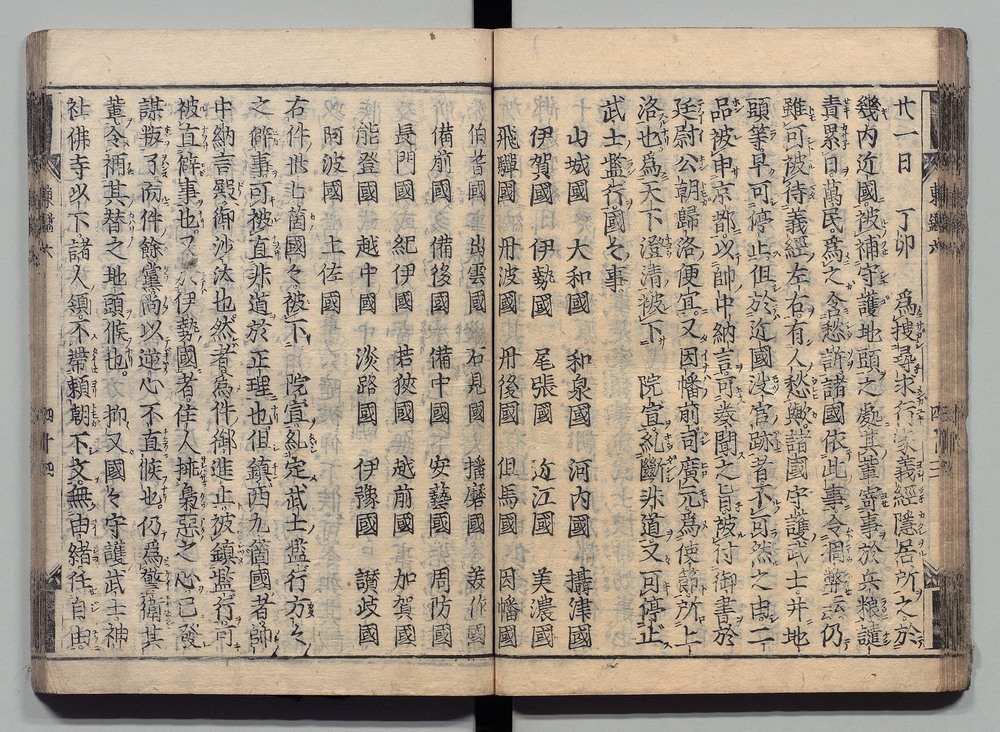 廿一日　丁卯　爲搜尋求行家義經隱居所〻於
畿内近國被補守護地頭之處其輩寄事於兵粮譴
責累日萬民爲之含愁訴諸國依此事令凋弊云〻仍
雖可被待義經左右有人愁歟諸國守護武士并地
頭等早可停止但於近國沒官跡者不可然之由二
品被申京都以帥中納言可奏聞之旨被付御書於
廷尉公朝歸洛便宜又因幡前司廣元爲使節所上
洛也爲天下澄清被下　院宣糺斷非道又可停止
武士濫行國〻事
山城國　大和國　和泉國　河内國　攝津國
伊賀國　伊勢國　尾張國　近江國　美濃國
飛驒國　丹波國　丹後國　但馬國　因幡國
伯耆國　出雲國　石見國　播磨國　美作國
備前國　備後國　備中國　安藝國　周防國
長門國　紀伊國　若狹國　越前國　加賀國
能登國　越中國　淡路國　伊豫國　讃岐國
阿波國　土佐國
右件卅七箇國〻被下　院宣糺定武士濫行方〻
之僻事可被直非道於正理也但鎭西九箇國者帥
中納言殿御沙汰也然者爲件御進止被鎭濫行可
被直僻事也又於伊勢國者住人挾梟惡之心已發
謀叛了而件餘黨尚以逆心不直候也仍爲警衛其
輩令補其替之地頭候也　抑又國〻守護武士神
社佛寺以下諸人領不帶頼朝下文無由緒任自由